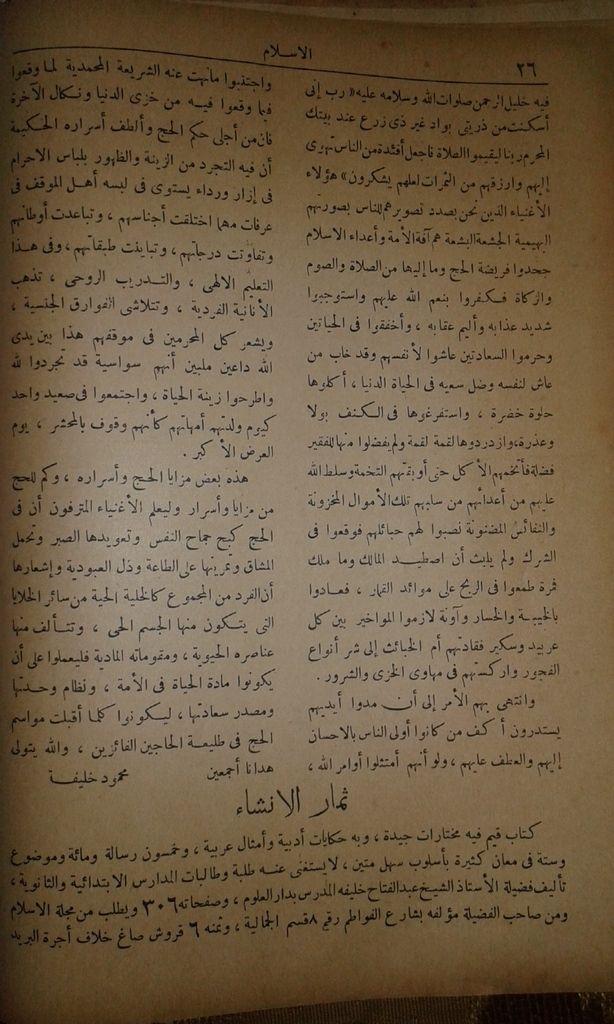 ٢٦
الاسلام
فيه خليل الرحمن صلوات الله وسلامه عليه « رب إنى
أسكنت من ذريتى بواد غير ذى زرع عند بيتك
المحرم ربنا ليقيموا الصلاة فاجعل أفئدة من الناس تهوى
إليهم وارزقهم من الثمرات لعلهم يشكرون » هؤلاء
الأغنياء الذين نحن بصدد تصويرهم للناس بصورتهم
البهيمية الجشعة البشعة هم آفة الأمة وأعداء الاسلام
جحدوا فريضة الحج وما إليها من الصلاة والصوم
والزكاة فكفروا بنعم الله عليهم واستوجبوا
شديد عذابه وأليم عقابه ، وأخفقوا فى الحياتين
وحرموا السعادتين عاشوا لأنفسهم وقد خاب من
عاش لنفسه وضل سعيه فى الحياة الدنيا ، أكلوها
حلوة خضرة ، واستفرغوها فى الكنف بولا
وعذرة ، وازدردوها لقمة لقمة ولم يفضلوا منها للفقير
فضلة فأتخمهم الأكل حتى أوبقتهم التخمة وسلط الله
عليهم من أعدائهم من سلبهم تلك الأموال المخزونة
والنفائس المضنونة نصبوا لهم حبائلهم فوقعوا فى
الشرك ولم يلبث أن اصطيد المالك وما ملك
ثمرة طمعوا فى الربح على موائد القمار ، فعادوا
بالخيبة والخسار وآونة لازموا المواخير بين كل
عربيد وسكير فقادتهم أم الخبائث إلى شر أنواع
الفجور واركستهم فى مهاوى الخزى والشرور .
وانتهى بهم الأمر إلى أن مدوا أيديهم
يستدرون أكف من كانوا أولى الناس بالاحسان
إليهم والعطف عليهم ، ولو أنهم أمتثلوا أوامر الله ،
واجتنبوا مانهت عنه الشريعة المحمدية لما وقعوا
فيما وقعوا فيه من خزى الدنيا ونكال الآخرة
فان من أجلى حكم الحج وألطف أسراره الحكيمة
أن فيه التجرد من الزينة والظهور بلباس الاحرام
فى إزار ورداء يستوى فى لبسه أهل الموقف فى
عرفات مهما اختلفت أجناسهم ، وتباعدت أوطانهم
وتفاوتت درجاتهم ، وتباينت طبقاتهم ، وفى هذا
التعليم الالهى ، والتدريب الروحى ، تذهب
الأنانية الفردية ، وتتلاشى الفوارق الجنسية ،
ويشعر كل المحرمين فى موقفهم هذا بين يدى
الله داعين ملبين أنهم سواسية قد تجردوا لله
واطرحوا زينة الحياة ، واجتمعوا فى صعيد واحد
كيوم ولدتهم أمهاتهم كأنهم وقوف بالمحشر ، يوم
العرض الأكبر .
هذه بعض مزايا الحج وأسراره ، وكم للحج
من مزايا وأسرار وليعلم الأغنياء المترفون أن فى
الحج كبح جماح النفس وتعويدها الصبر وتحمل
المشاق وتمرينها على الطاعة وذل العبودية وإشعارها
أن الفرد من المجموع كالخلية الحية من سائر الخلايا
التى يتكون منها الجسم الحى ، وتتألف منها
عناصره الحيوية ، ومقوماته المادية فليعملوا على أن
يكونوا مادة الحياة فى الأمة ، ونظام وحدتها
ومصدر سعادتها ، ليكونوا كلما أقبلت مواسم
الحج فى طليعة الحاجين الفائزين ، والله يتولى
هدانا أجمعين محمود خليفة
ثمار الانشاء
كتاب قيم فيه مختارات جيدة ، وبه حكايات أدبية وأمثال عربية ، وخمسون رسالة ومائة وموضوع
وستة فى معان كثيرة بأسلوب سهل متين ، لا يستغنى عنه طلبة وطالبات المدارس الابتدائية والثانوية ،
تأليف فضيلة الأستاذ الشيخ عبد الفتاح خليفه المدرس بدار العلوم ، وصفحاته ٣٠٦ ويطلب من مجلة الاسلام
ومن صاحب الفضيلة مؤلفه بشارع الفواطم رقم ٨ قسم الجمالية ، وثمنه ٦ قروش صاغ خلاف أجرة البريد